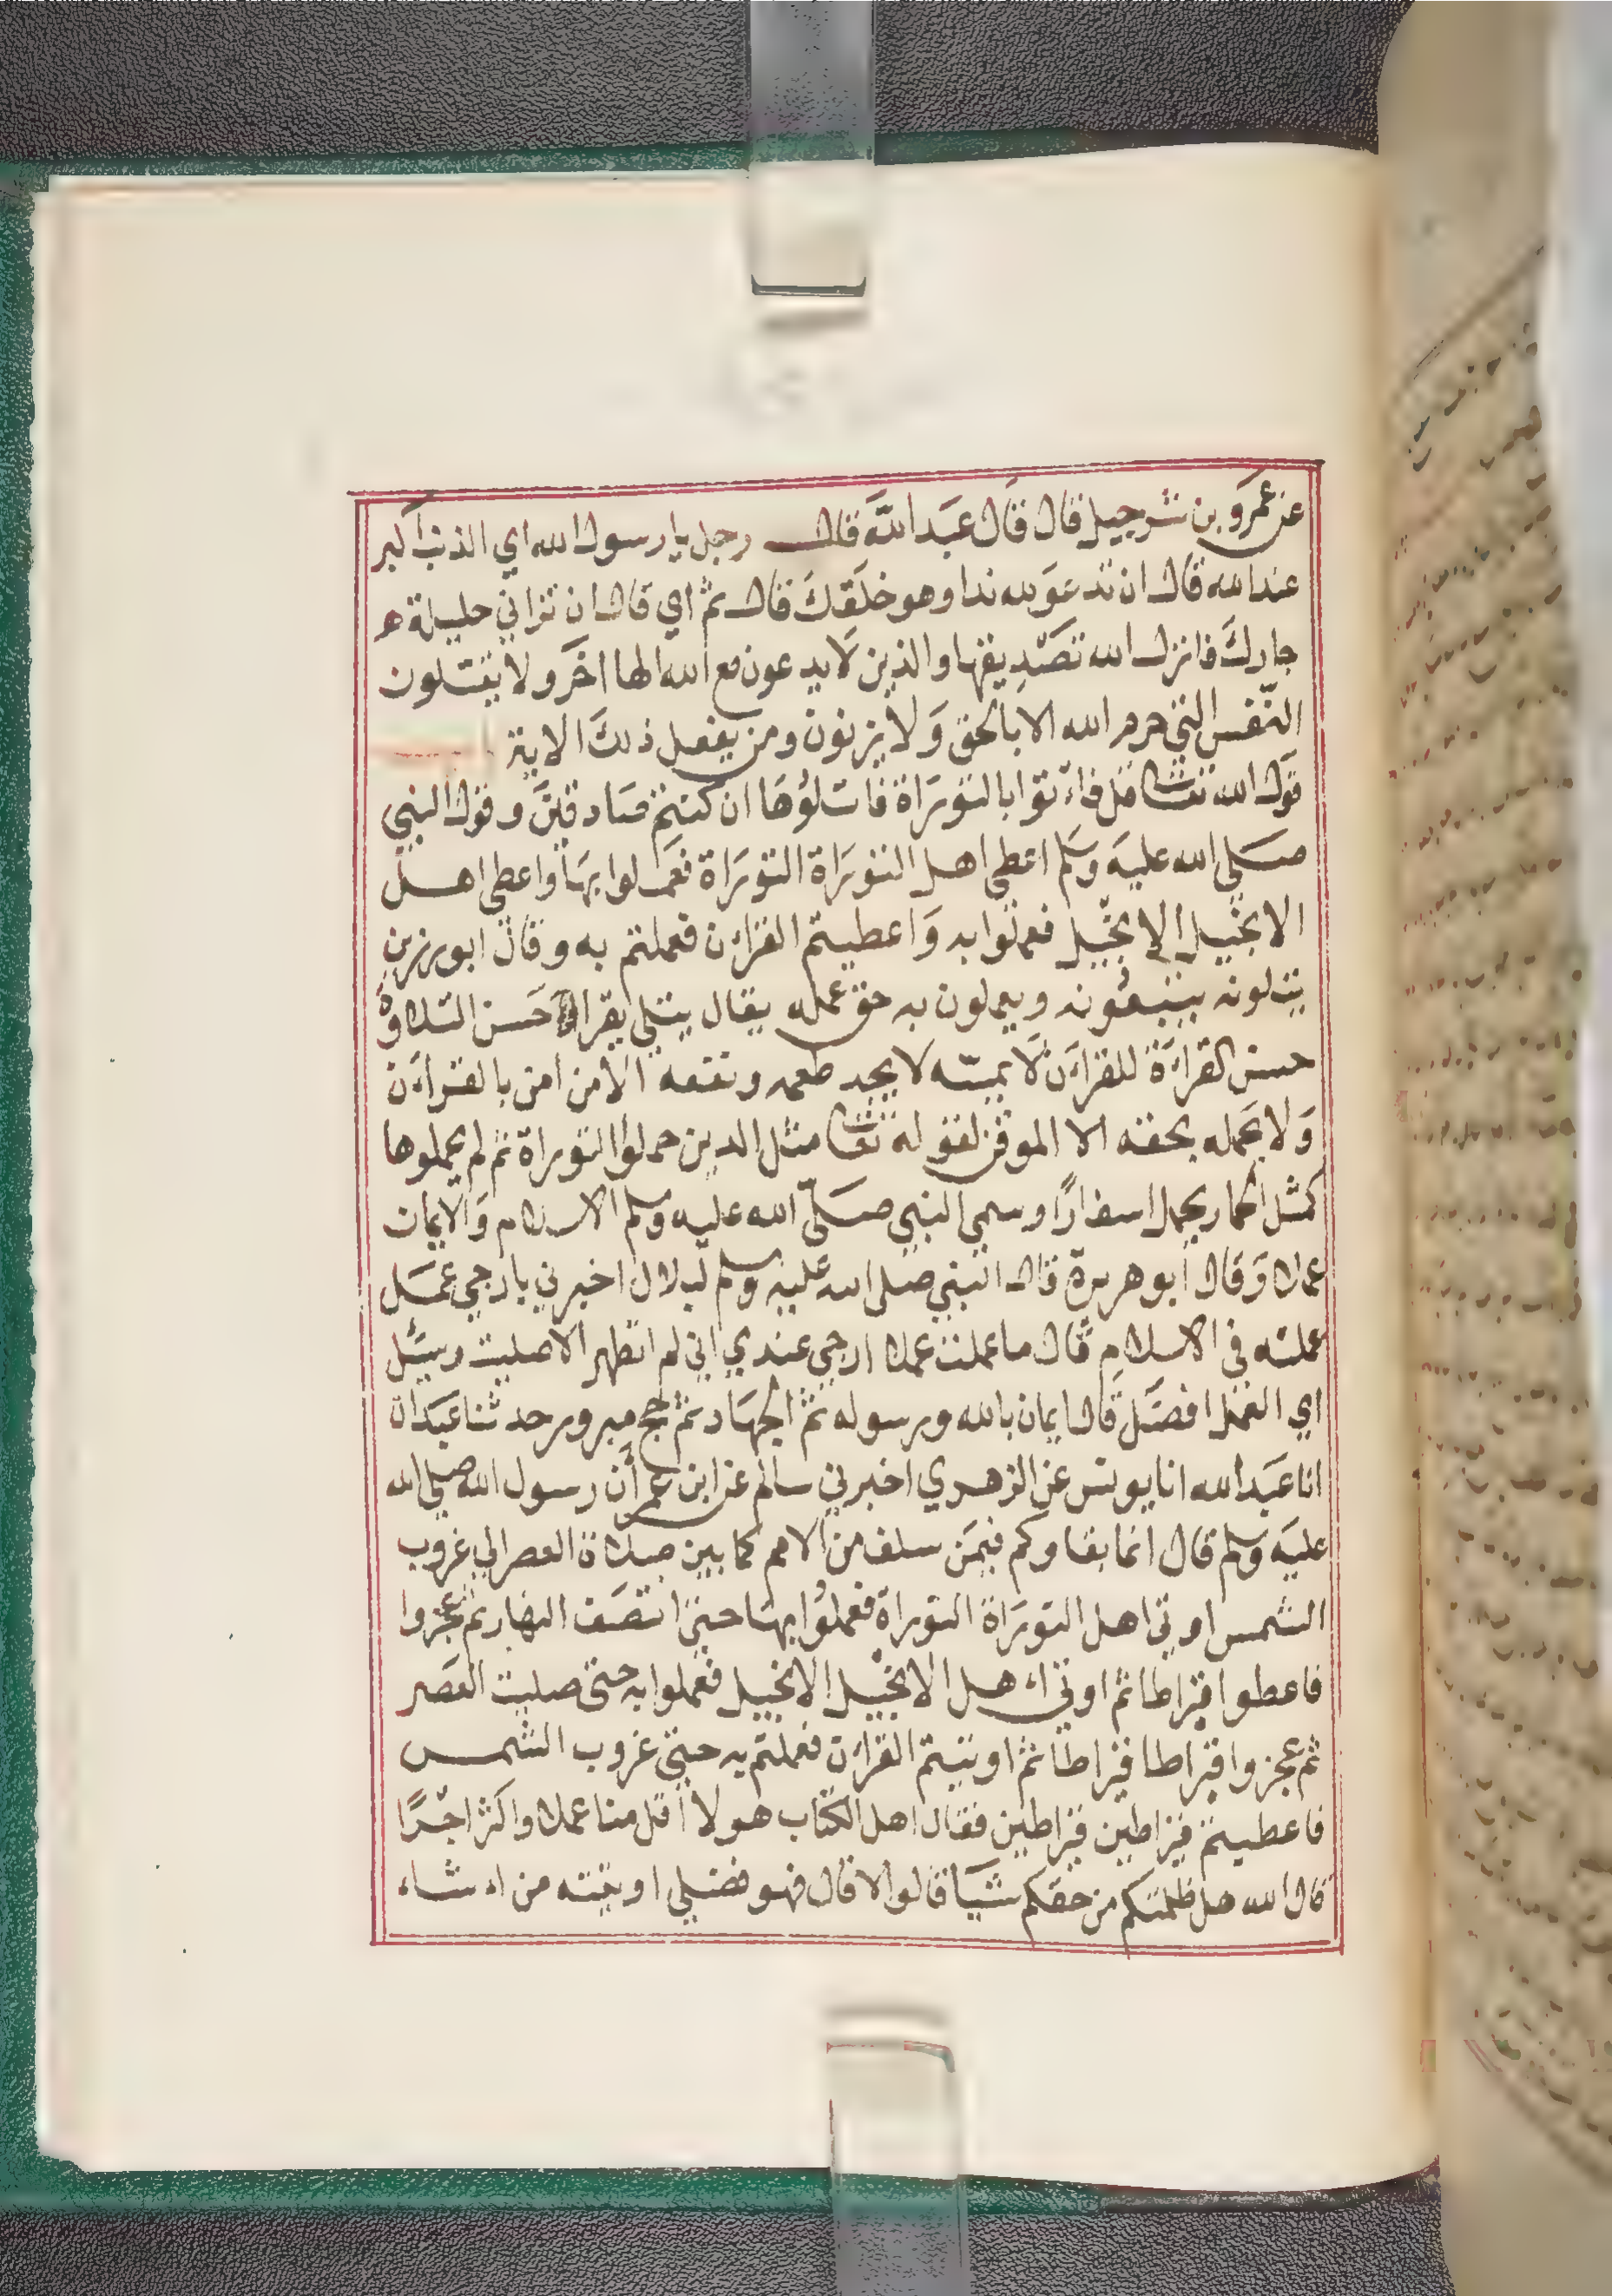 عن عمرو بن شرحبيل قال قال عبد الله قال رجل يا رسول الله اي الذنب اكبر
عند الله قال ان تدعو لله ندا وهو خلقك قال ثم اي قال ان تزاني حليلة
جارك فانزل الله تصديقها والذين لا يدعون مع الله الها اخر ولا يقتلون
النفس التي حرم الله الا بالحق ولا يزنون ومن يفعل ذلك الاية
قول الله تعالى قل فاتوا بالتوراة فاتلوها ان كنتم صادقين وقول النبي
صلى الله عليه وسلم اعطي اهل التوراة التوراة فعملوا بها واعطي اهل
الانجيل الانجيل فعملوا به واعطيتم القراءن فعملتم به وقال ابو رزين
يتلونه يتبعونه ويعملون به حق عمله يقال يتلى يقرا حسن التلاوة
حسن القراءة للقراءن لا يمسه لا يجد طعمه ونفعه الا من امن بالقراءن
ولا يحمله بحقه الا الموقن لقوله تعالى مثل الذين حملوا التوراة ثم لم يحملوها
كمثل الحمار يحمل اسفارًا وسمي النبي صلى الله عليه وسلم الاسلام والايمان
عملا وقال ابو هريرة قال النبي صلى الله عليه وسلم لبلال اخبرني بارجي عمل
عملته في الاسلام قال ما عملت عملا ارجي عندي اني لم اتطهر الا صليت وسئل
اي العمل افضل قال ايمان بالله ورسوله ثم الجهاد ثم حج مبرور حدثنا عبدان
انا عبد الله انا يونس عن الزهري اخبرني سالم عن ابن عمر أن رسول الله صلى الله
عليه وسلم قال انما بقاوكم فيمن سلف من الامم كما بين صلاة العصر الي غروب
الشمس اوتي اهل التوراة التوراة فعملوا بها حتى انتصف النهار ثم عجزوا
فاعطوا قيراطا ثم اوتي اهل الانجيل الانجيل فعملوا به حتى صليت العصر
ثم عجزوا قيراطا قيراطا ثم اوتيتم القراءن فعملتم به حتى غروب الشمس
فاعطيتم قيراطين قيراطين فقال اهل الكتاب هولا اقل منا عملا واكثر اجرًا
قال الله هل ظلمتكم من حقكم شيا قالوا لا قال فهو فضلي اوتيته من اشاء